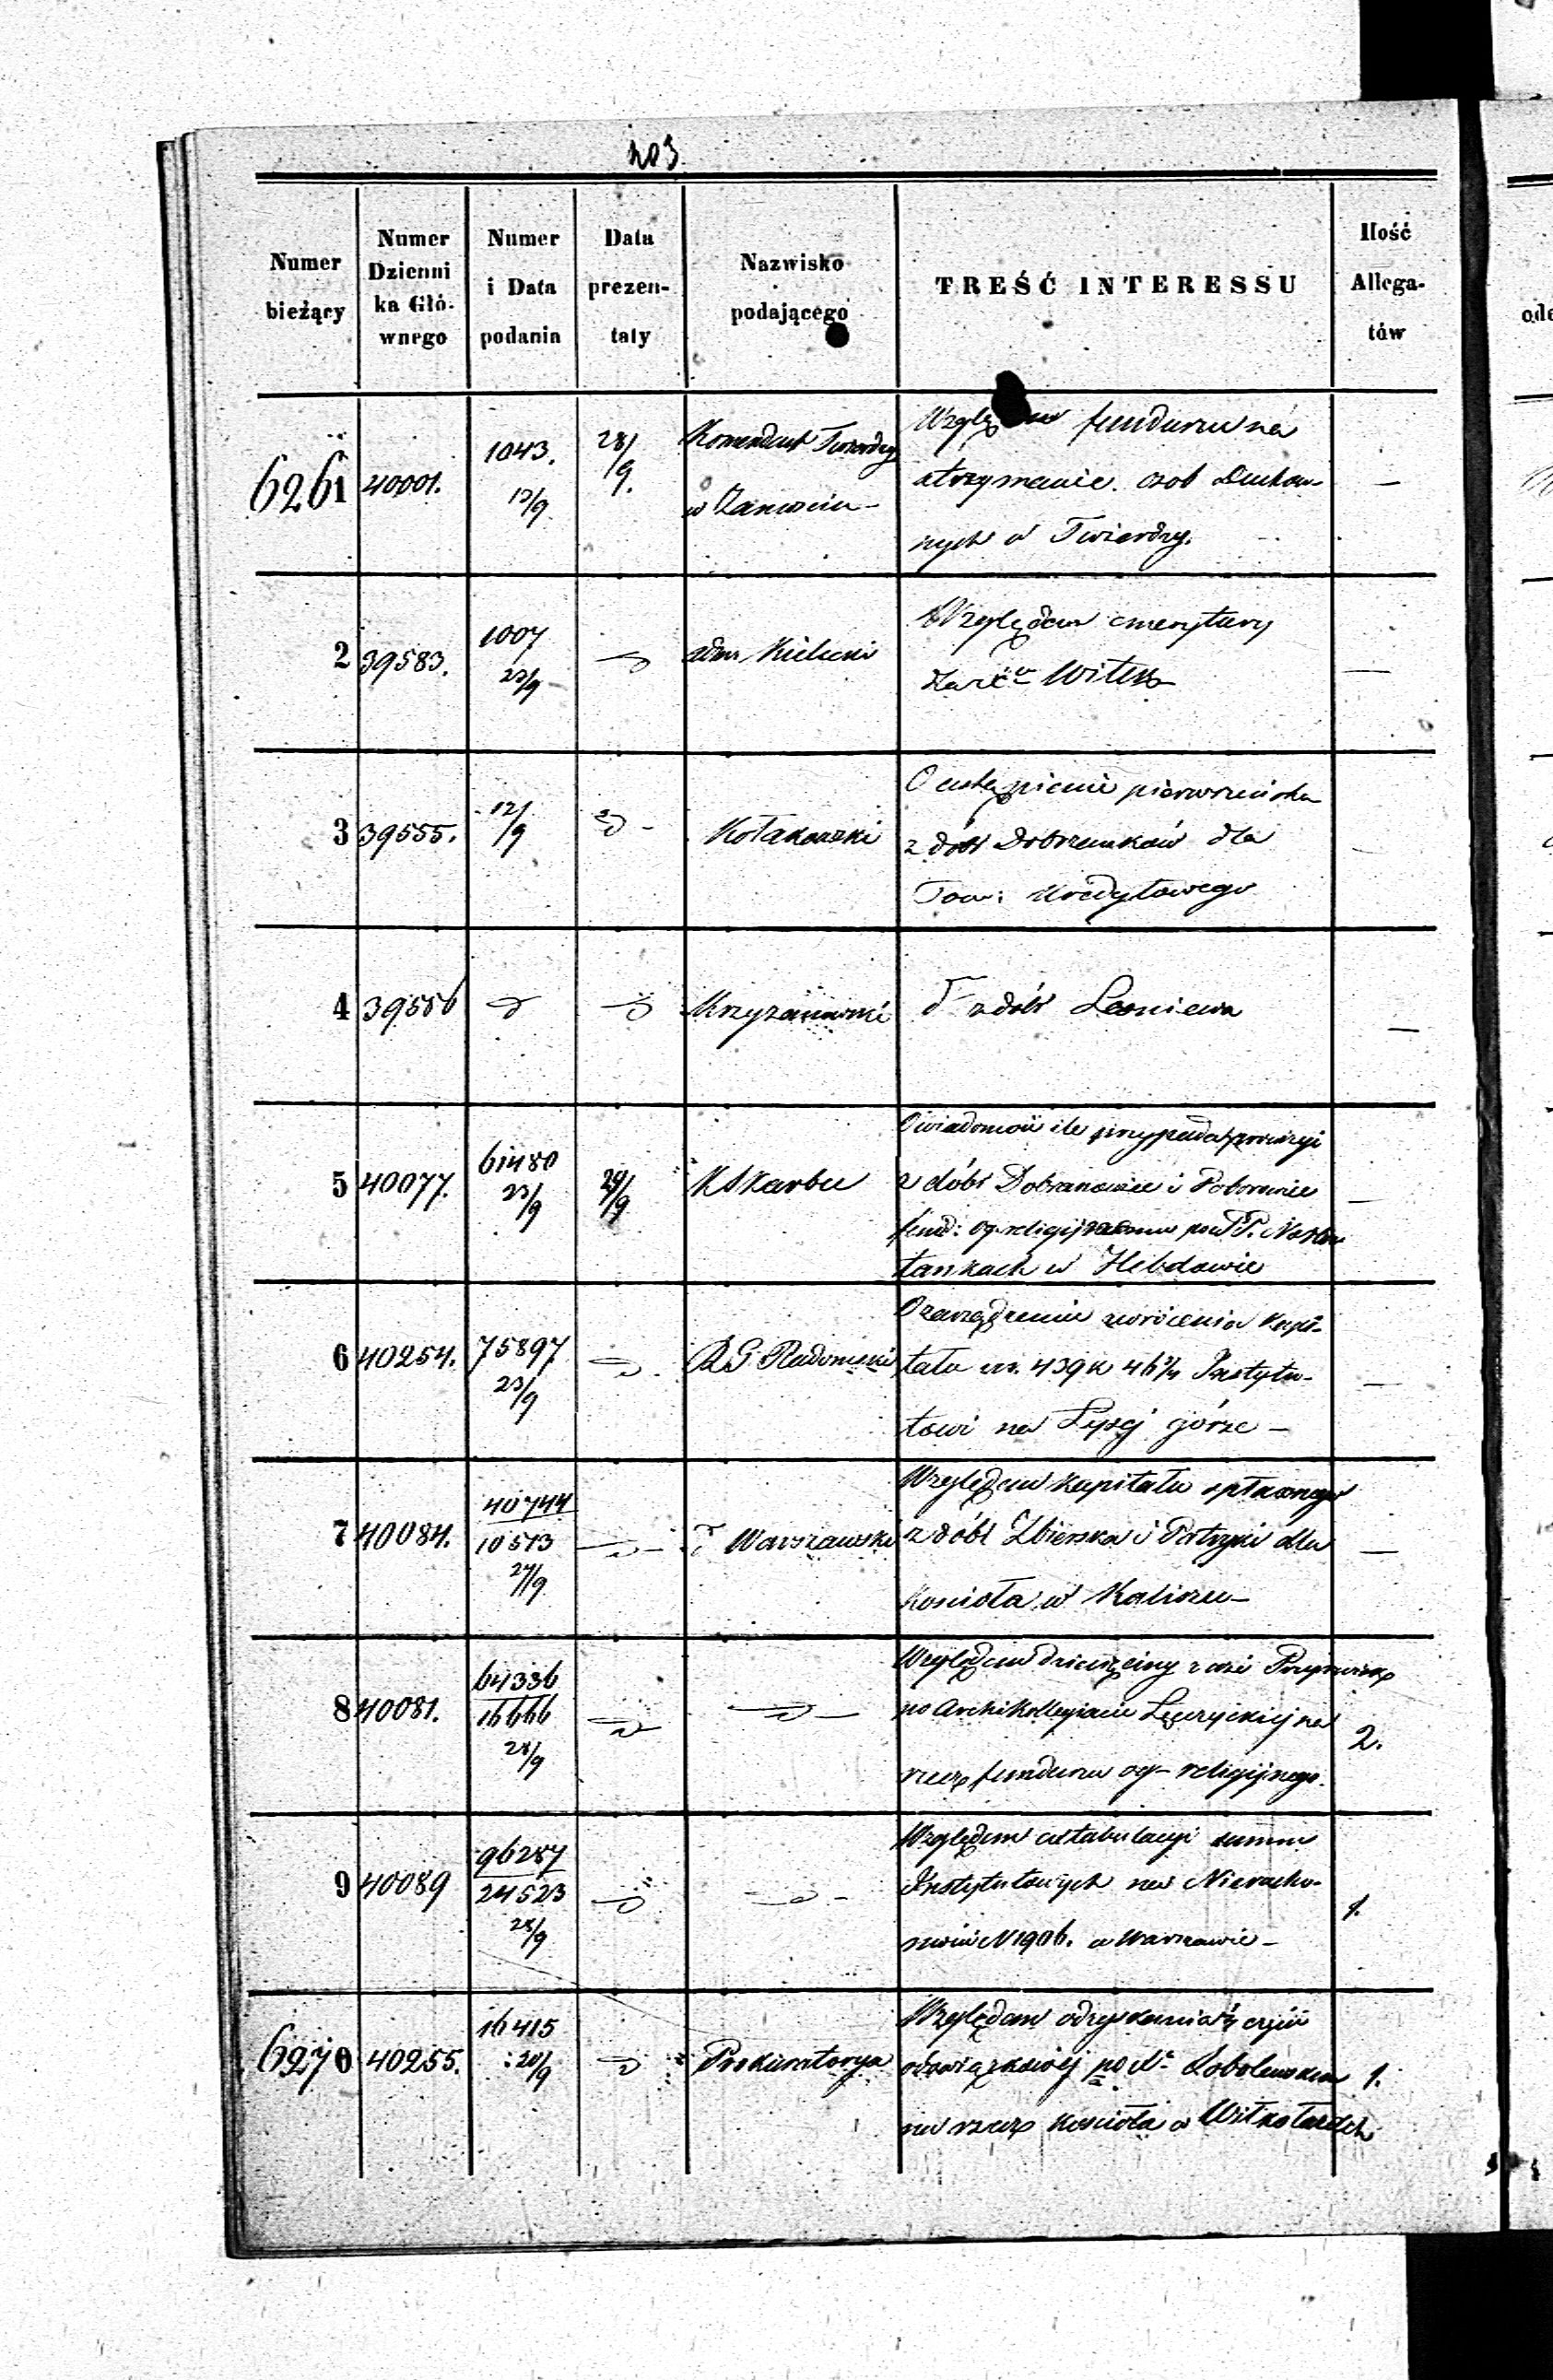 203
Numer bieżący
Numer Dzienni ka Głó- wnego
Numer i Data podania
Data prezen- taty
Nazwisko podającego
TREŚĆ INTERESSU
Ilość Allega- tów
6261 40001. 1043. 13/9 28/9. Komendant Twierdzy w Zamościu –
funduszu na
utrzymanie osob Duchow-
nych w Twierdzy. –
2 39583. 1007 23/9 Adm. Kielecki
Względem emerytury
Witek –
3 39555. 12/9 Kołakowski
O ustąpienie pierwszeństwa
z dóbr Dobrzankow dla
Tow: Kredytowego
4 39556 Krzyzanowski
z dóbr Leśniewa –
5 40077. 61480 23/9 29/9 K Skarbu
O wiadomość ile przypada prowizyi
z dóbr Dobranowice i Poborowice
fund: og. religijnemu po PP. Norber
tankach w Hebdowie –
6 40254. 75897 23/9 R G Radomski
O zarządzenie zwrócenia kapi-
tału rs. 439 k 46½ Instytu-
towi na Łysej górze –
7 40084. 40744 10573 27/9 Warszawski
Względem kapitału spłaconego
z dóbr Zbierska i Petryki dla
Kościoła w Kaliszu –
8 40081. 64336 16666 28/9
Względem dziesięciny z wsi
po Archikollegiacie Łęczyckiej na
rzecz funduszu og – religijnego. 2.
9 40089 96287 24523 28/9
Względem extabulacyi summ
Instytutowych na Nierucho-
mości N 1906. w Warszawie – 1.
6270 40255. 16415 20/9 Prokuratorya
Względem odzyskania
obowiązkowej po Sobolewskim 1.
na rzecz Kościoła w Witkołazach